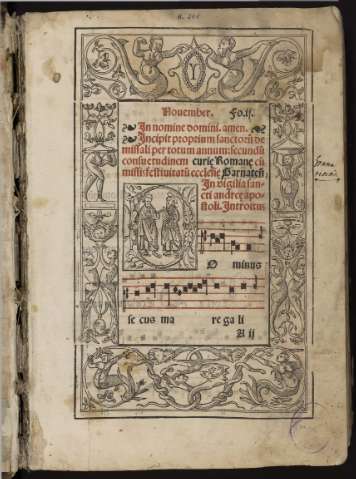 November. Fo. ij.
In nomine domini. amen.
Incipit proprium sanctorũ de
missali per totum annum: secundũ
consuetudinem curie Romane cũ
missis festivitatũ ecclesie
In vigilia san-
cti andree apo-
stoli. Introitus
Y
O minus
se cus ma re ga li
A ij